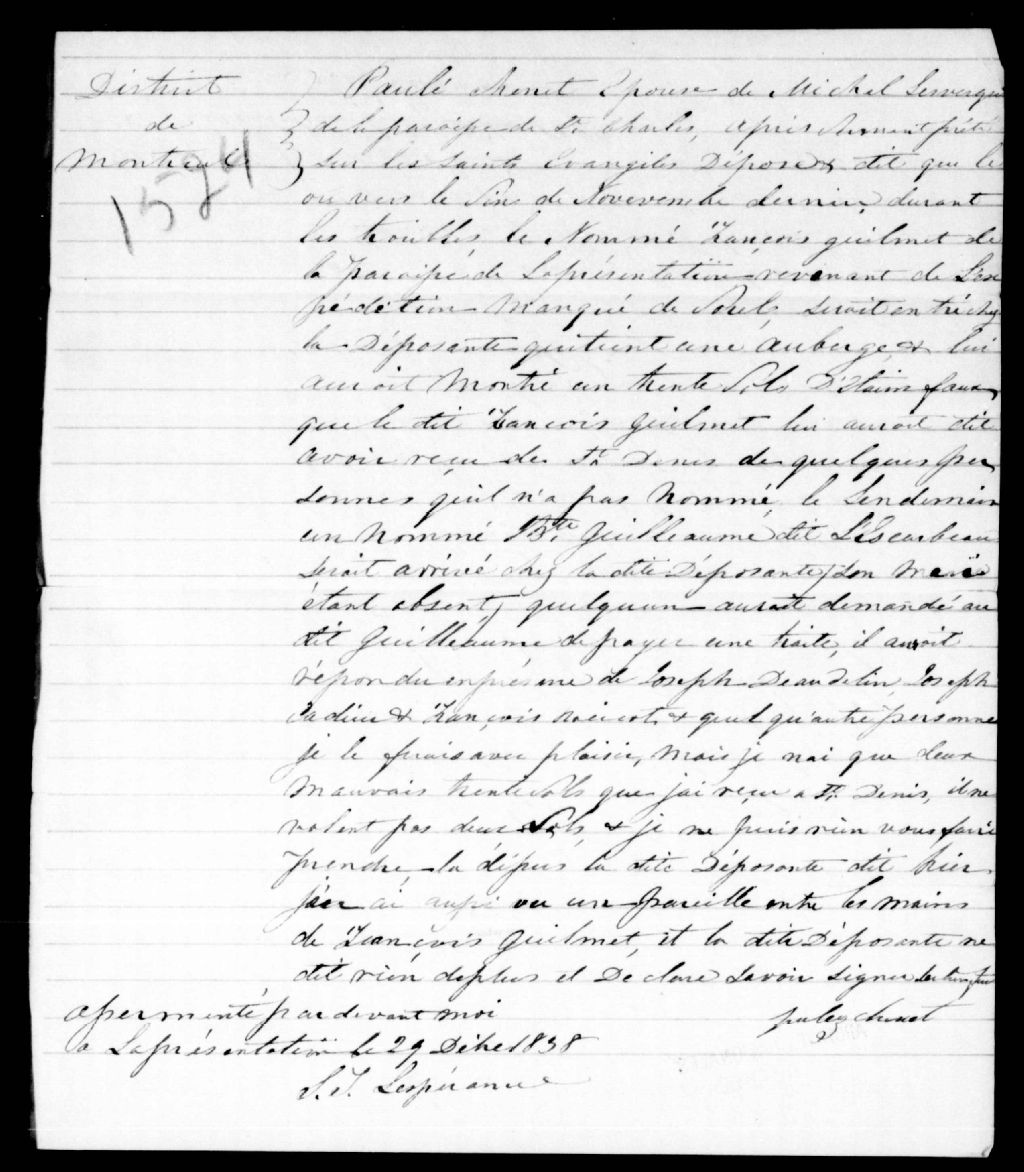 District
de
Montreal
1524
Paulé Chenet Epouse de Michel
de la paroisse de St. Charles, après Serment prété
Sur les Saints Evangiles Dépose & dit que le
ou vers le Sinc de Novevembe dernier, durant
les troubles, le Nommé Francois guilmet de
la paroisse de Laprésentation revenant de Lex
pédétion Manqué de Sorel, Seroit entré chez
la Déposante qui tient une Auberge, & lui
auroit Montré un trente Sols D'Etaim faux,
que le dit Francois guilmet lui auroit dit
avoir reçu de St. Denis de quelques per
sonnes quil n'a pas Nommé, le Lendemain
un Nommé Bte. Guilleaume dit L'Escarbeau
Seroit arrivé chez la dite Déposante (Son Marie
étant absent) quelquun auroit demandé au
dit Guilleaume de payer une traite, il auroit
répondu en présence de Joseph Beaudelin, Joseph
Cadieu & François & quelqu'autre personne
je le ferais avec plaisir, Mais je nai que deux
Mauvais trente Sols que jai reçu a St. Denis, il ne
valent pas deux Sols, & je ne puis rien vous faire
prendre, la dépus la dite Déposante dit hier
j'en ai aussi vu un pareille entre les mains
de François Guilmet, et la dite Déposante ne
dit rien deplus et Déclare Savoir Signer
assermenté pardevant moi
a Laprésentation le 29 Débe 1838
paley chenet
S. J. Lespérance